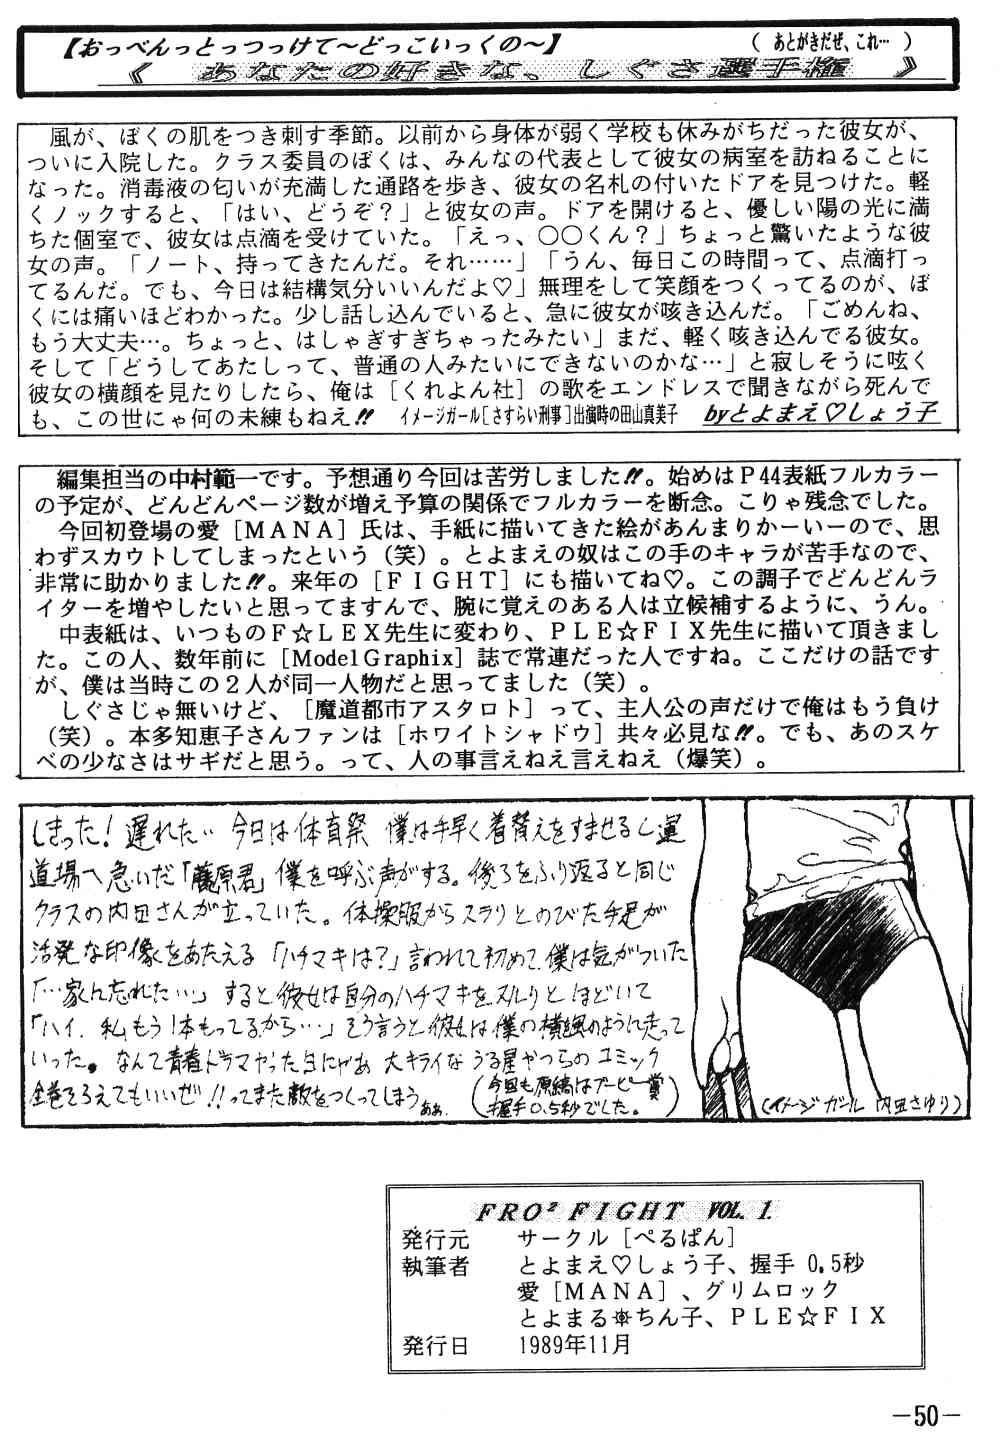 【おっべんっとっつっけて～どっこいっくの～】
（ あとがきだぜ、これ… ）
《 あなたの好きな、しぐさ選手権 》
風が、ぼくの肌をつき刺す季節。以前から身体が弱く学校も休みがちだった彼女が、
ついに入院した。クラス委員のぼくは、みんなの代表として彼女の病室を訪ねることに
なった。消毒液の匂いが充満した通路を歩き、彼女の名札の付いたドアを見つけた。軽
くノックすると、「はい、どうぞ？」と彼女の声。ドアを開けると、優しい陽の光に満
ちた個室で、彼女は点滴を受けていた。「えっ、○○くん？」ちょっと驚いたような彼
女の声。「ノート、持ってきたんだ。それ……」「うん、毎日この時間って、点滴打っ
てるんだ。でも、今日は結構気分いいんだよ♡」無理をして笑顔をつくってるのが、ぼ
くには痛いほどわかった。少し話し込んでいると、急に彼女が咳き込んだ。「ごめんね、
もう大丈夫…。ちょっと、はしゃぎすぎちゃったみたい」まだ、軽く咳き込んでる彼女。
そして「どうしてあたしって、普通の人みたいにできないのかな…」と寂しそうに呟く
彼女の横顔を見たりしたら、俺は［くれよん社］の歌をエンドレスで聞きながら死んで
も、この世にゃ何の未練もねえ!! イメージガール［さすらい刑事］出演時の田山真美子 byとよまえ♡しょう子
編集担当の中村範一です。予想通り今回は苦労しました!!。始めはＰ44表紙フルカラー
の予定が、どんどんページ数が増え予算の関係でフルカラーを断念。こりゃ残念でした。
今回初登場の愛［ＭＡＮＡ］氏は、手紙に描いてきた絵があんまりかーいーので、思
わずスカウトしてしまったという（笑）。とよまえの奴はこの手のキャラが苦手なので、
非常に助かりました!!。来年の［ＦＩＧＨＴ］にも描いてね♡。この調子でどんどんラ
イターを増やしたいと思ってますんで、腕に覚えのある人は立候補するように、うん。
中表紙は、いつものＦ☆ＬＥＸ先生に変わり、ＰＬＥ☆ＦＩＸ先生に描いて頂きまし
た。この人、数年前に［Model Graphix］誌で常連だった人ですね。ここだけの話です
が、僕は当時この２人が同一人物だと思ってました（笑）。
しぐさじゃ無いけど、［魔道都市アスタロト］って、主人公の声だけで俺はもう負け
（笑）。本多知恵子さんファンは［ホワイトシャドウ］共々必見な!!。でも、あのスケ
ベの少なさはサギだと思う。って、人の事言えねえ言えねえ（爆笑）。
しまった！遅れた… 今日は体育祭 僕は手早く着替えをすませると運
道場へ急いだ「藤原君」僕を呼ぶ声がする。後ろをふり返ると同じ
クラスの内田さんが立っていた。体操服からスラリとのびた手足が
活発な印像をあたえる「ハチマキは？」言われて初めて僕は気がついた
「…家に忘れた…」すると彼女は自分のハチマキをスルリとほどいて
「ハイ．私もう1本もってるから…」そう言うと彼女は僕の横を風のように走って
いった。なんて青春ドラマやった日にゃあ 大キライなうる星やつらのコミック
全巻そろえてもいいぜ!!ってまた敵をつくってしまう ああ．
（今回も原稿はブービー賞
握手0.5秒でした。）
（イメージガール 内田さゆり）
FRO² FIGHT VOL. 1.
発行元 サークル［ぺるぱん］
執筆者 とよまえ♡しょう子、握手 0.5秒
愛［ＭＡＮＡ］、グリムロック
とよまる☸ちん子、ＰＬＥ☆ＦＩＸ
発行日 1989年11月
－50－